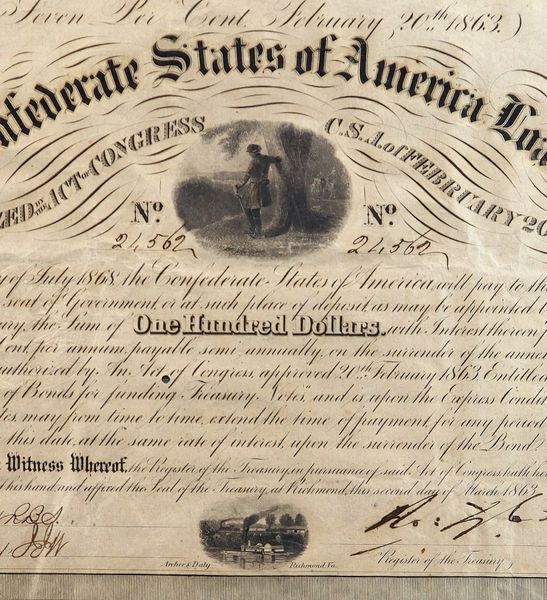 Seven Per Cent. February 20th 1863.)
nfederate States of America Loa
ZED BY THE ACT OF CONGRESS
C.S.A. of FEBRUARY 20
No. No.
24562 24562
y of July 1868, the Confederate States of America, will pay to the
seat of Government, or at such place of deposit, as may be appointed
ury, the Sum of One Hundred Dollars, with Interest thereon
Cent, per annum, payable semi-annually, on the surrender of the annex
authorized by An Act of Congress approved 20th February 1863, Entitled
of Bonds for funding Treasury Notes," and is upon the Express Condit
tes, may from time to time, extend the time of payment, for any period
this date, at the same rate of interest, upon the surrender of the Bond
Witness Whereof, the Register of the Treasury, in pursuance of said Act of Congress, hath here
his hand, and affixed the Seal of the Treasury, at Richmond, this second day of March 1863
Archer & Daly Richmond, Va.
Register of the Treasury